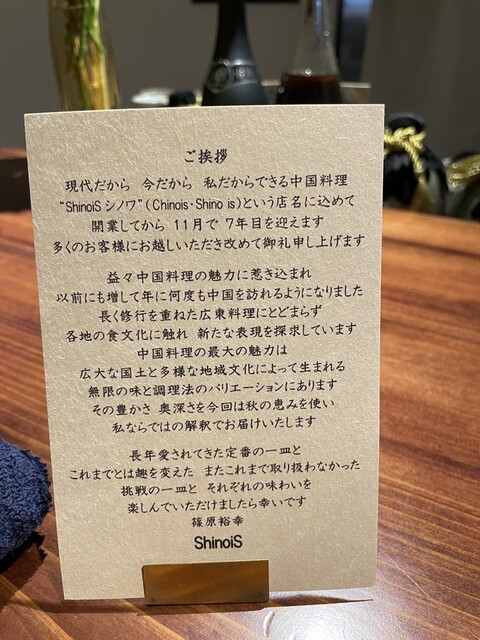 ご挨拶
現代だから 今だから 私だからできる中国料理
"ShinoiS シノワ"(Chinois・Shino is)という店名に込めて
開業してから 11月で 7年目を迎えます
多くのお客様にお越しいただき改めて御礼申し上げます
益々中国料理の魅力に惹き込まれ
以前にも増して年に何度も中国を訪れるようになりました
長く修行を重ねた広東料理にとどまらず
各地の食文化に触れ 新たな表現を探求しています
中国料理の最大の魅力は
広大な国土と多様な地域文化によって生まれる
無限の味と調理法のバリエーションにあります
その豊かさ 奥深さを今回は秋の恵みを使い
私ならではの解釈でお届けいたします
長年愛されてきた定番の一皿と
これまでとは趣を変えた またこれまで取り扱わなかった
挑戦の一皿と それぞれの味わいを
楽しんでいただけましたら幸いです
篠原裕幸
ShinoiS